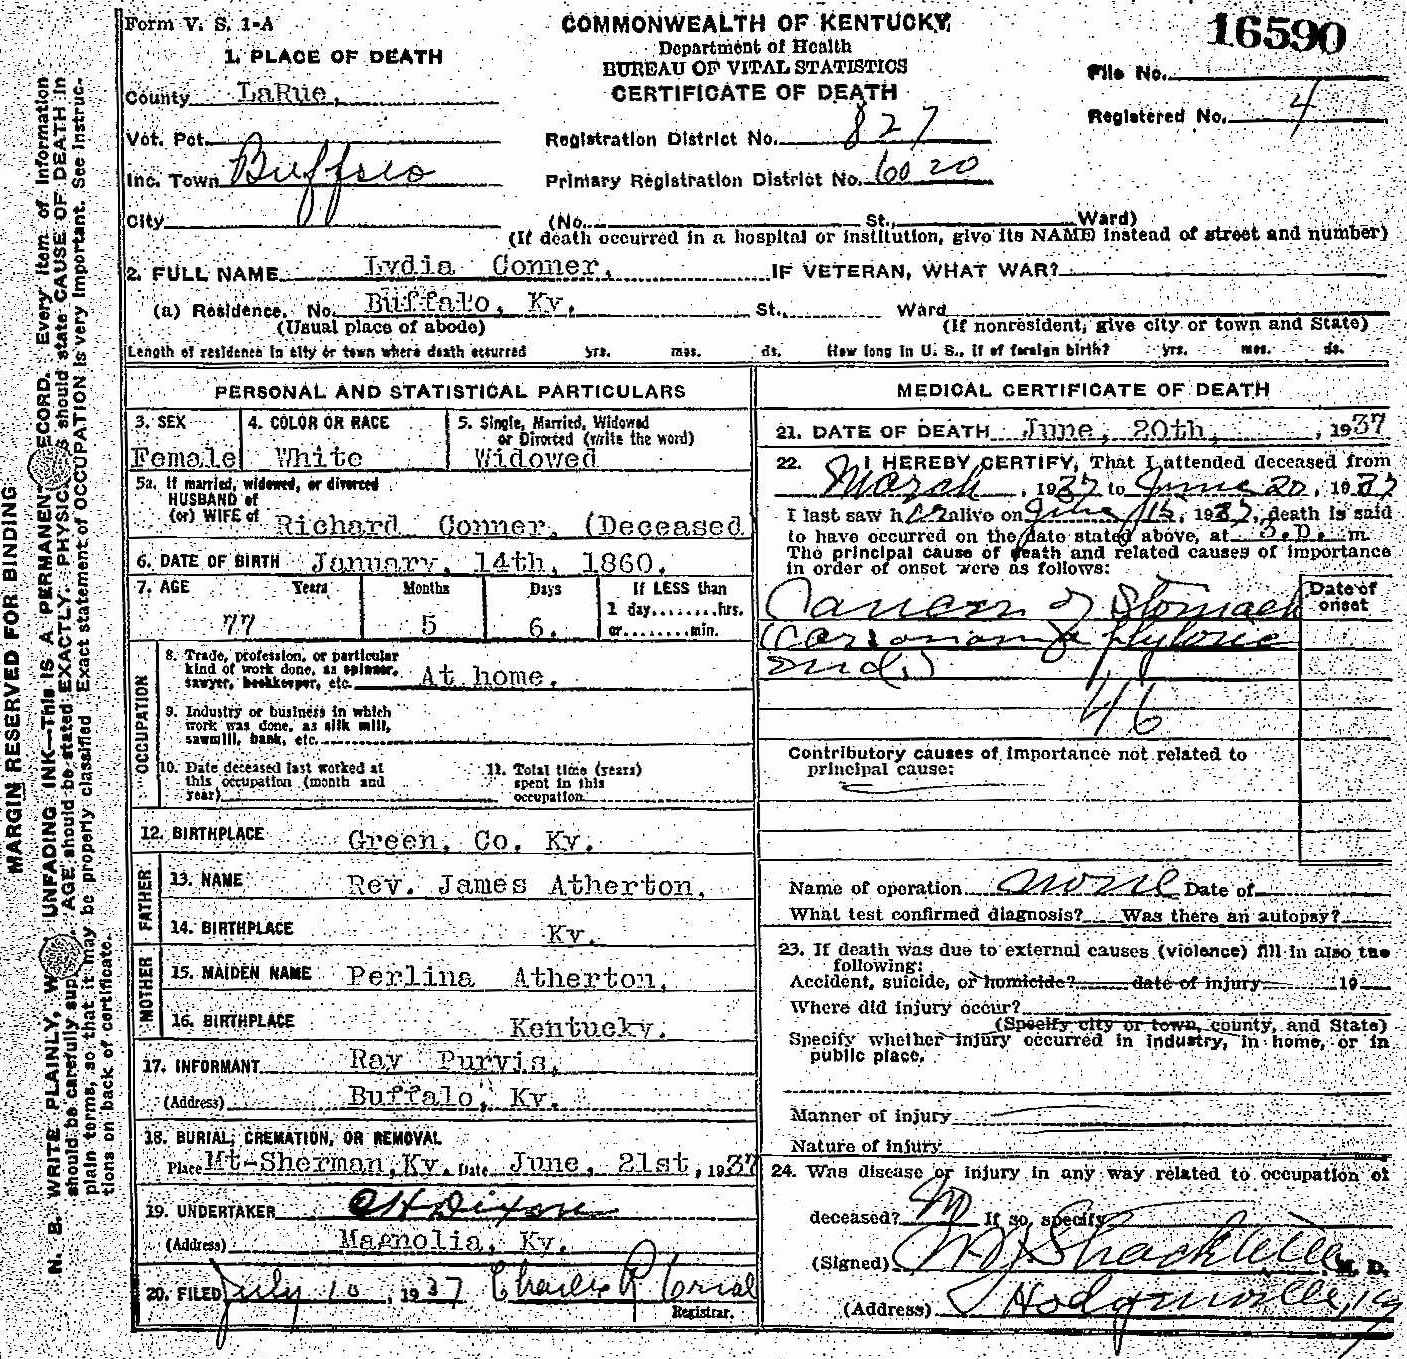 Form V. S. 1-A
COMMONWEALTH OF KENTUCKY
Department of Health
BUREAU OF VITAL STATISTICS
CERTIFICATE OF DEATH
16590
File No.
Registered No. 4
1. PLACE OF DEATH
County LaRue,
Vot. Pct.
Inc. Town Buffalo
City
Registration District No. 827
Primary Registration District No. 6020
(No. St., Ward)
(If death occurred in a hospital or institution, give its NAME instead of street and number)
2. FULL NAME Lydia Conner, IF VETERAN, WHAT WAR?
(a) Residence. No. Buffalo, Ky. St., Ward
(Usual place of abode) (If nonresident, give city or town and State)
Length of residence in city or town where death occurred yrs. mos. ds. How long in U. S., if of foreign birth? yrs. mos. ds.
PERSONAL AND STATISTICAL PARTICULARS
3. SEX
Female
4. COLOR OR RACE
White
5. Single, Married, Widowed
or Divorced (write the word)
Widowed
5a. If married, widowed, or divorced
HUSBAND of
(or) WIFE of Richard Conner, (Deceased
6. DATE OF BIRTH January, 14th, 1860.
7. AGE Years Months Days If LESS than
77 5 6. 1 day........hrs.
or........min.
OCCUPATION
8. Trade, profession, or particular
kind of work done, as spinner,
sawyer, bookkeeper, etc. At home.
9. Industry or business in which
work was done, as silk mill,
sawmill, bank, etc.
10. Date deceased last worked at
this occupation (month and
year)
11. Total time (years)
spent in this
occupation
12. BIRTHPLACE Green, Co. Ky.
FATHER
13. NAME Rev. James Atherton,
14. BIRTHPLACE Ky.
MOTHER
15. MAIDEN NAME Perlina Atherton,
16. BIRTHPLACE Kentucky.
17. INFORMANT Ray Purvis,
(Address) Buffalo, Ky.
18. BURIAL, CREMATION, OR REMOVAL
Place Mt-Sherman, Ky. Date June, 21st, 1937
19. UNDERTAKER Dixon
(Address) Magnolia, Ky.
20. FILED July 10, 1937 Charles R
Registrar.
MEDICAL CERTIFICATE OF DEATH
21. DATE OF DEATH June, 20th, , 1937
22. I HEREBY CERTIFY, That I attended deceased from
March , 1937 to June 20, 1937
I last saw her alive on June 15, 1937, death is said
to have occurred on the date stated above, at m.
The principal cause of death and related causes of importance
in order of onset were as follows:
Date of
onset
Cancer of Stomach
(Carsonoma Phyloric
End)
46
Contributory causes of importance not related to
principal cause:
Name of operation none Date of
What test confirmed diagnosis? Was there an autopsy?
23. If death was due to external causes (violence) fill in also the
following:
Accident, suicide, or homicide? date of injury 19
Where did injury occur?
(Specify city or town, county, and State)
Specify whether injury occurred in industry, in home, or in
public place.
Manner of injury
Nature of injury
24. Was disease or injury in any way related to occupation of
deceased? If so, specify
(Signed) Shacklette M. D.
(Address) Hodgenville, Ky
MARGIN RESERVED FOR BINDING
N. B. WRITE PLAINLY, UNFADING INK—This IS A PERMANENT RECORD. Every item of information
should be carefully AGE should be stated EXACTLY. should state CAUSE OF DEATH in
plain terms, so that it may be properly classified Exact statement of OCCUPATION is very important. See instruc-
tions on back of certificate.